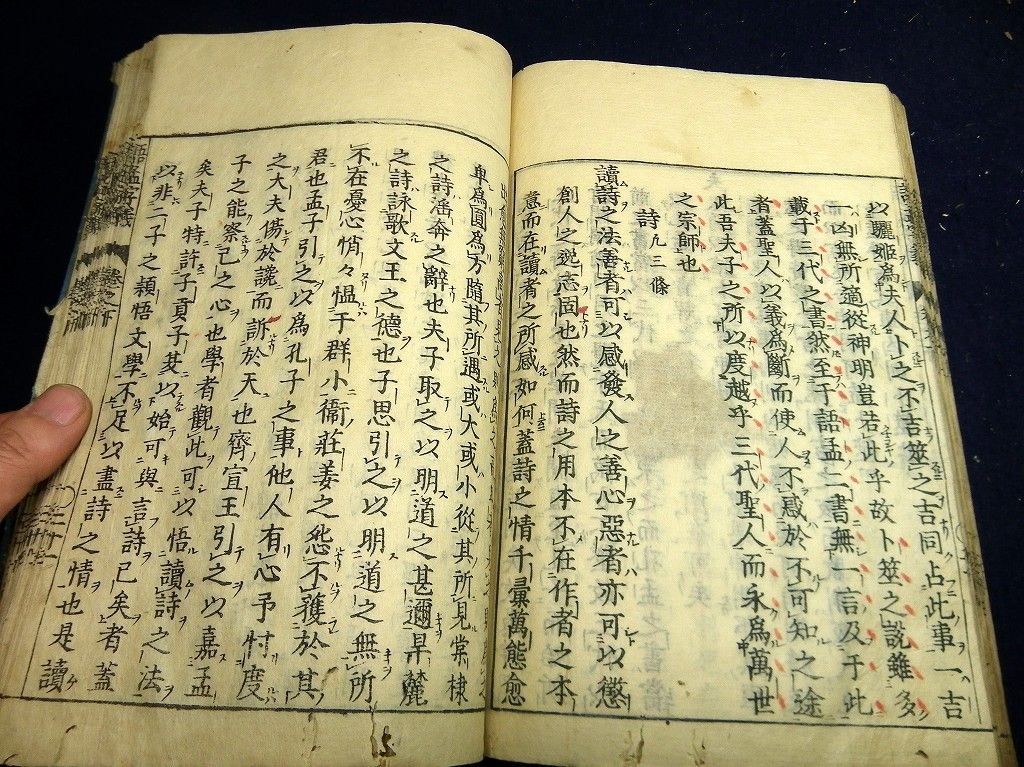 以驪姬為夫人卜之不吉筮之吉同占此事一吉
一凶無所適從神明豈若此乎故卜筮之説雖多
載于三代之書然至于語孟二書無一言及于此
者蓋聖人以義為斷而使人不惑於不可知之途
此吾夫子之所以度越乎三代聖人而永為萬世
之宗師也
詩 凡三條
讀詩之法善者可以感發人之善心惡者亦可以懲
創人之逸志固也然而詩之用本不在作者之本
意而在讀者之所感如何蓋詩之情千彙萬態愈
卑為圓為方隨其所遇或大或小從其所見棠棣
之詩滛奔之辭也夫子取之以明道之甚邇旱麓
之詩詠歌文王之德也子思引之以明道之無所
不在憂心悄々慍于群小衞莊姜之怨不獲於其
君也孟子引之以為孔子之事他人有心予忖度
之大夫傷於讒而訴於天也齊宣王引之以嘉孟
子之能察己之心也學者觀此可以悟讀詩之法
矣夫子特許子貢子夏以始可與言詩已矣者蓋
以非二子之穎悟文學不足以盡詩之情也是讀
語孟字義
卷之下